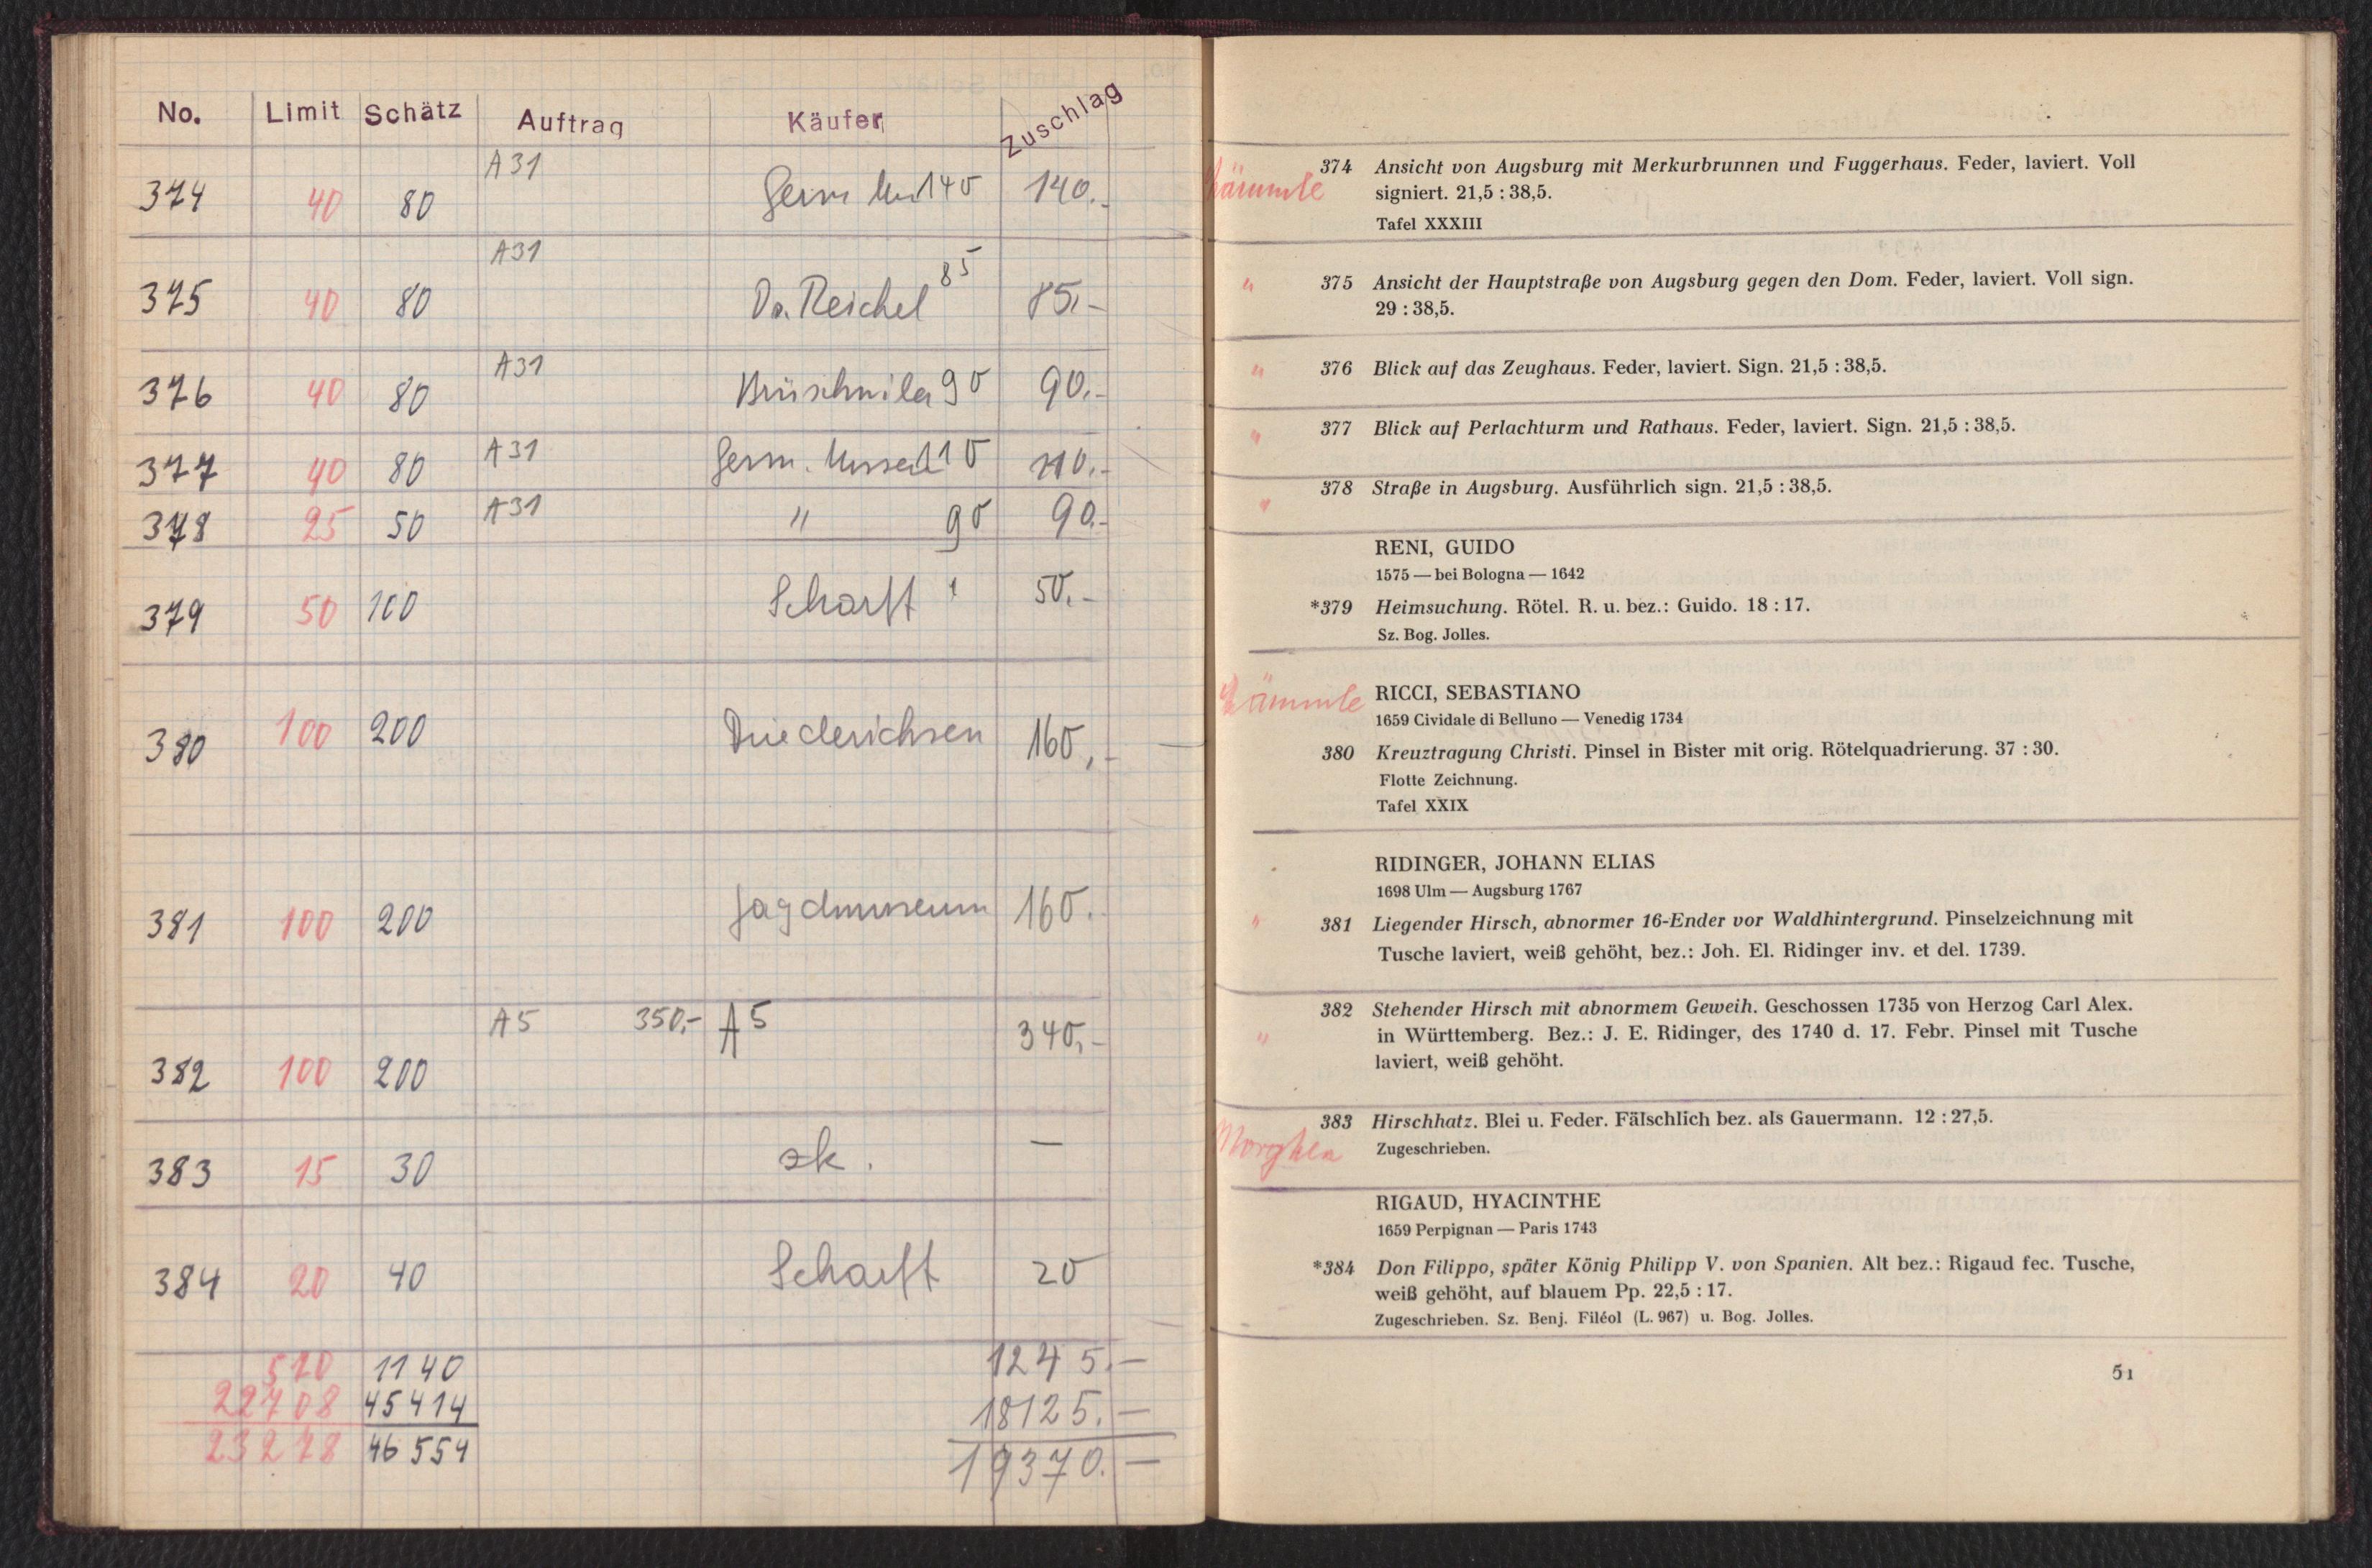 No. Limit Schätz Auftrag Käufer Zuschlag
A31
374 40 80 Germ Mus 140 140.-
A31
375 40 80 Dr. Reichel 85 85,-
A31
376 40 80 90 90.-
377 40 80 A31 Germ. Museum 110 110.-
378 25 50 A31 " 90 90.-
379 50 100 Scharff 50.-
380 100 200 Driederichsen 160,-
381 100 200 Jagdmuseum 160.
A5 350,- A5 340,-
382 100 200
383 15 30 zk. —
384 20 40 Scharff 20
570 1140 1245.—
22708 45414 18125.—
23278 46554 19370.—
374 Ansicht von Augsburg mit Merkurbrunnen und Fuggerhaus. Feder, laviert. Voll
Lämmle signiert. 21,5 : 38,5.
Tafel XXXIII
" 375 Ansicht der Hauptstraße von Augsburg gegen den Dom. Feder, laviert. Voll sign.
29 : 38,5.
" 376 Blick auf das Zeughaus. Feder, laviert. Sign. 21,5 : 38,5.
" 377 Blick auf Perlachturm und Rathaus. Feder, laviert. Sign. 21,5 : 38,5.
" 378 Straße in Augsburg. Ausführlich sign. 21,5 : 38,5.
RENI, GUIDO
1575 — bei Bologna — 1642
*379 Heimsuchung. Rötel. R. u. bez.: Guido. 18 : 17.
Sz. Bog. Jolles.
Lämmle RICCI, SEBASTIANO
1659 Cividale di Belluno — Venedig 1734
380 Kreuztragung Christi. Pinsel in Bister mit orig. Rötelquadrierung. 37 : 30.
Flotte Zeichnung.
Tafel XXIX
RIDINGER, JOHANN ELIAS
1698 Ulm — Augsburg 1767
" 381 Liegender Hirsch, abnormer 16-Ender vor Waldhintergrund. Pinselzeichnung mit
Tusche laviert, weiß gehöht, bez.: Joh. El. Ridinger inv. et del. 1739.
382 Stehender Hirsch mit abnormem Geweih. Geschossen 1735 von Herzog Carl Alex.
" in Württemberg. Bez.: J. E. Ridinger, des 1740 d. 17. Febr. Pinsel mit Tusche
laviert, weiß gehöht.
383 Hirschhatz. Blei u. Feder. Fälschlich bez. als Gauermann. 12 : 27,5.
Morghen Zugeschrieben.
RIGAUD, HYACINTHE
1659 Perpignan — Paris 1743
*384 Don Filippo, später König Philipp V. von Spanien. Alt bez.: Rigaud fec. Tusche,
weiß gehöht, auf blauem Pp. 22,5 : 17.
Zugeschrieben. Sz. Benj. Filéol (L. 967) u. Bog. Jolles.
51